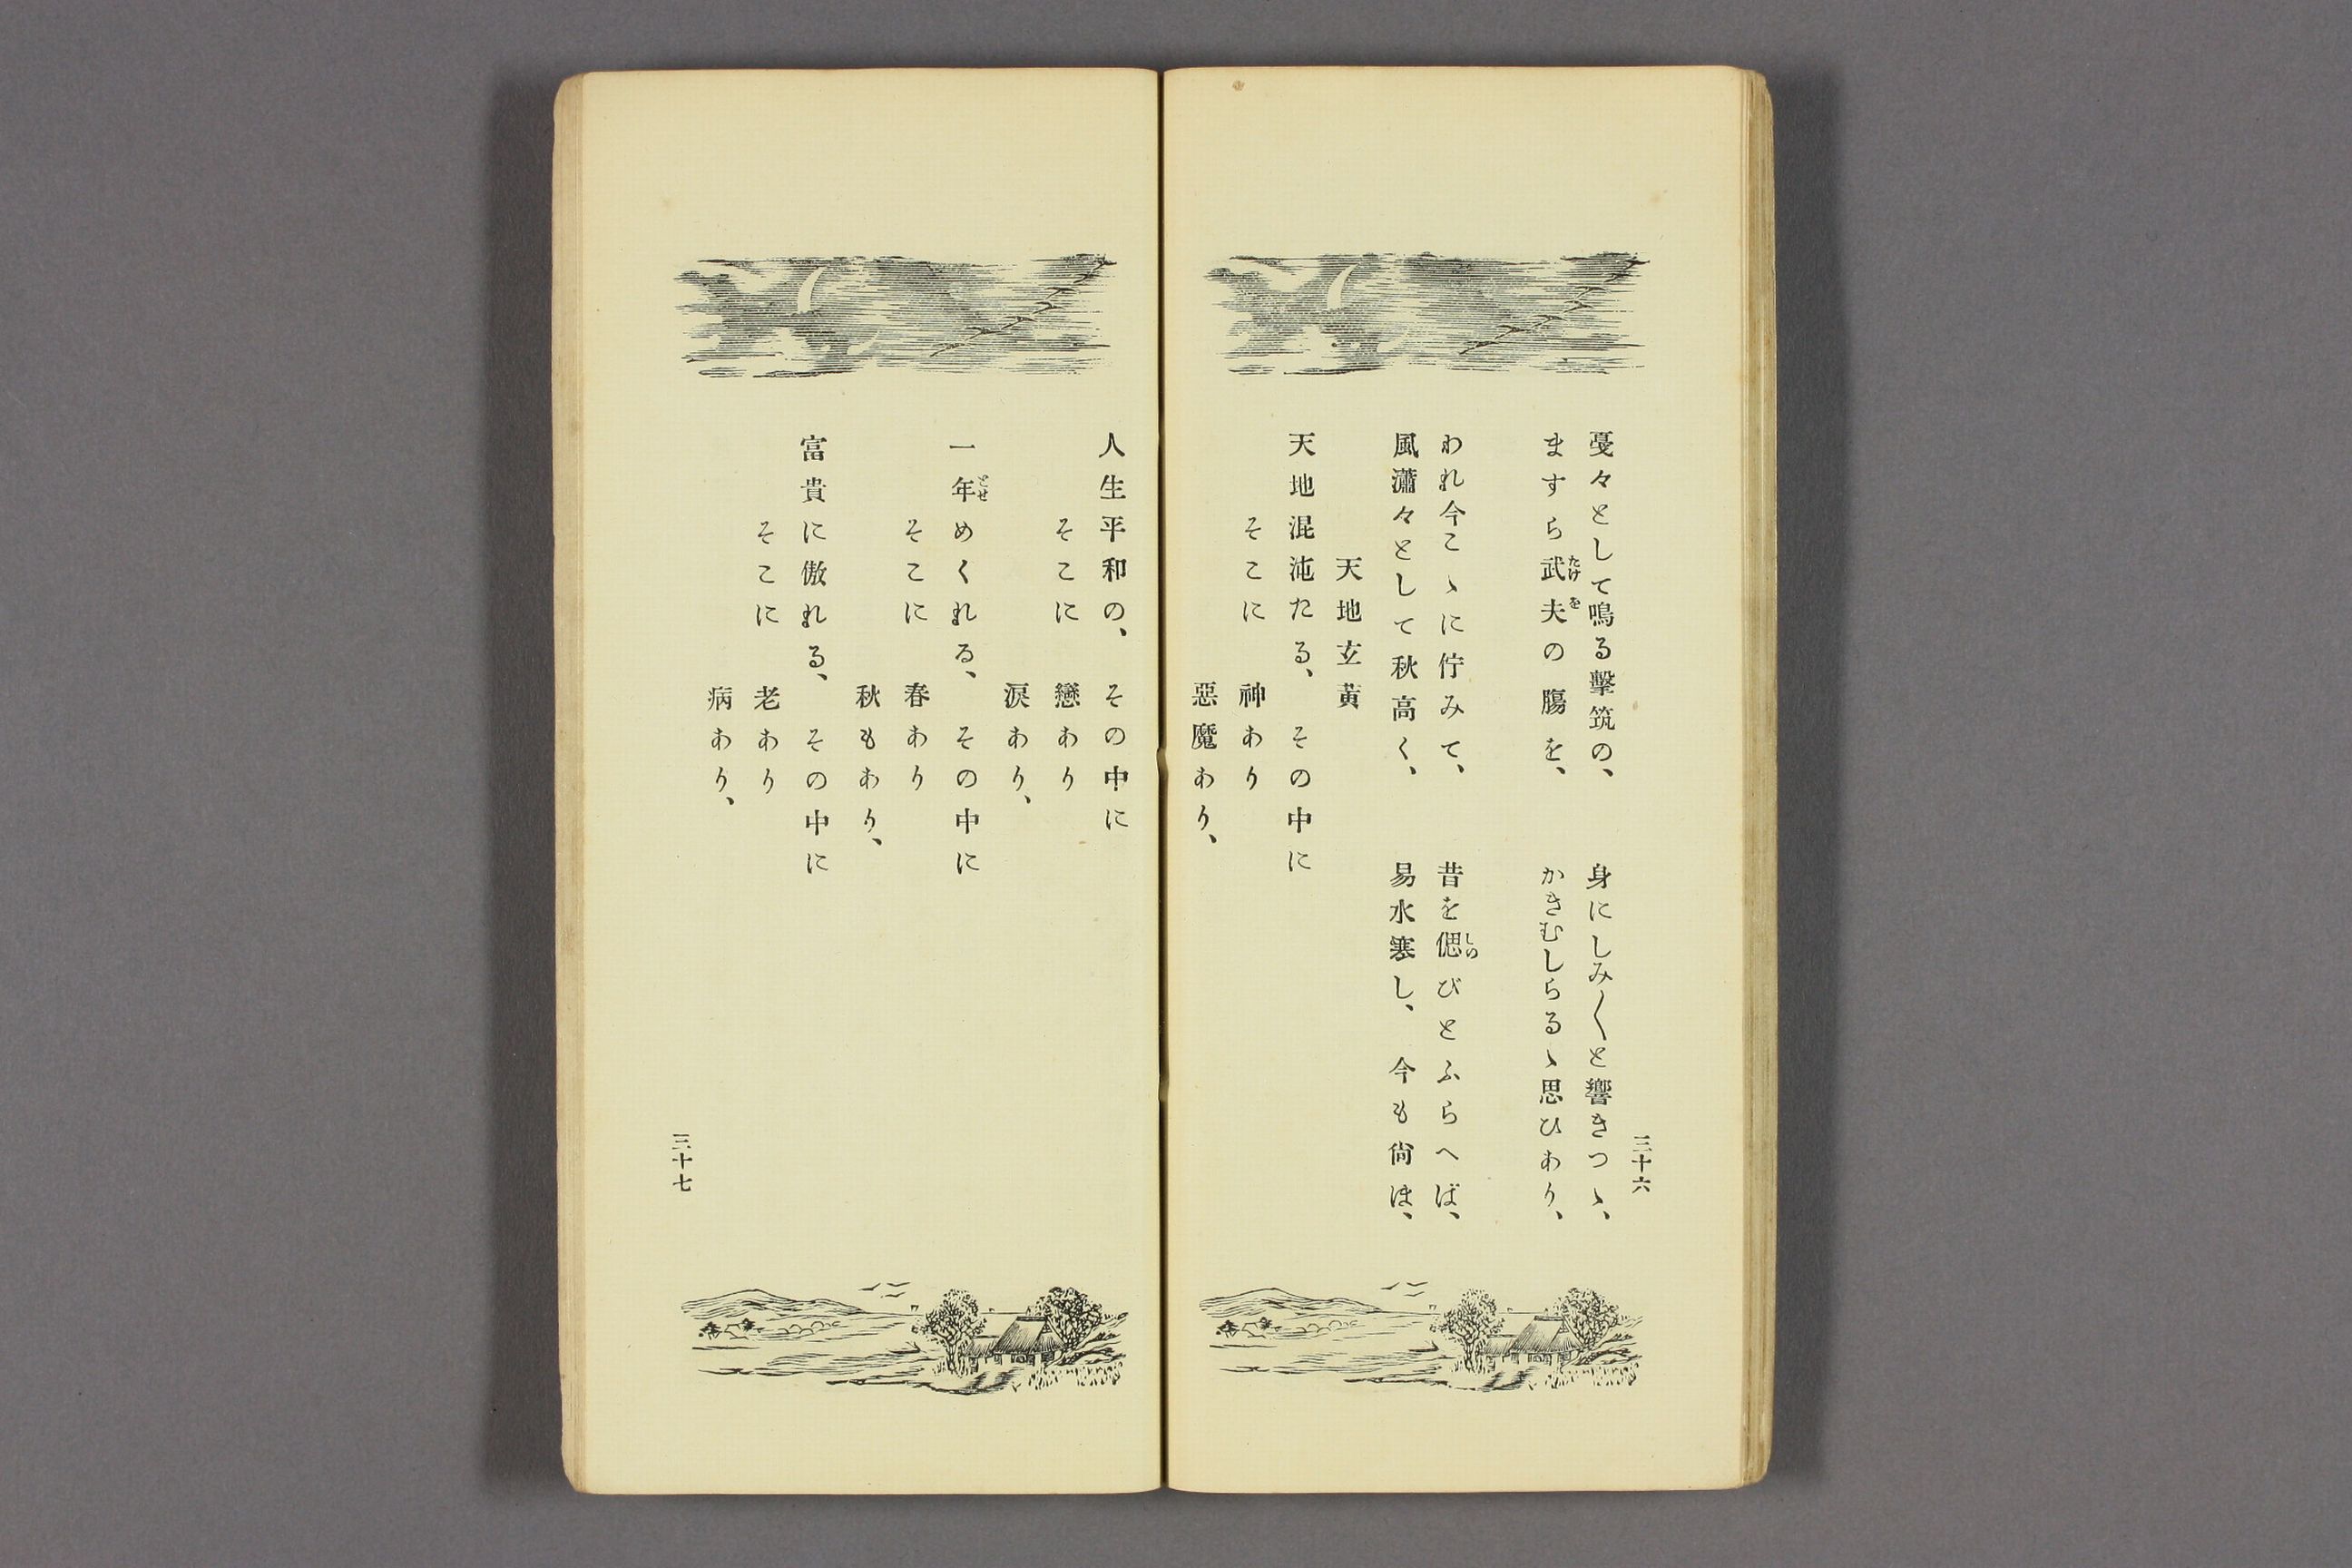 三十六
戞々として鳴る擊筑の、　身にしみ〱と響きつゝ、
ますら武夫の膓を、　かきむしらるゝ思ひあり、
われ今こゝに佇みて、　昔を偲びとふらへば、
風瀟々として秋高く、　易水寒し、今も尙ほ、
天地玄黃
天地混沌たる、　その中に
そこに　神あり
惡魔あり、
人生平和の、　その中に
そこに　戀あり
淚あり、
一年めくれる、　その中に
そこに　春あり
秋もあり、
富貴に傲れる、　その中に
そこに　老あり
病あり、
三十七